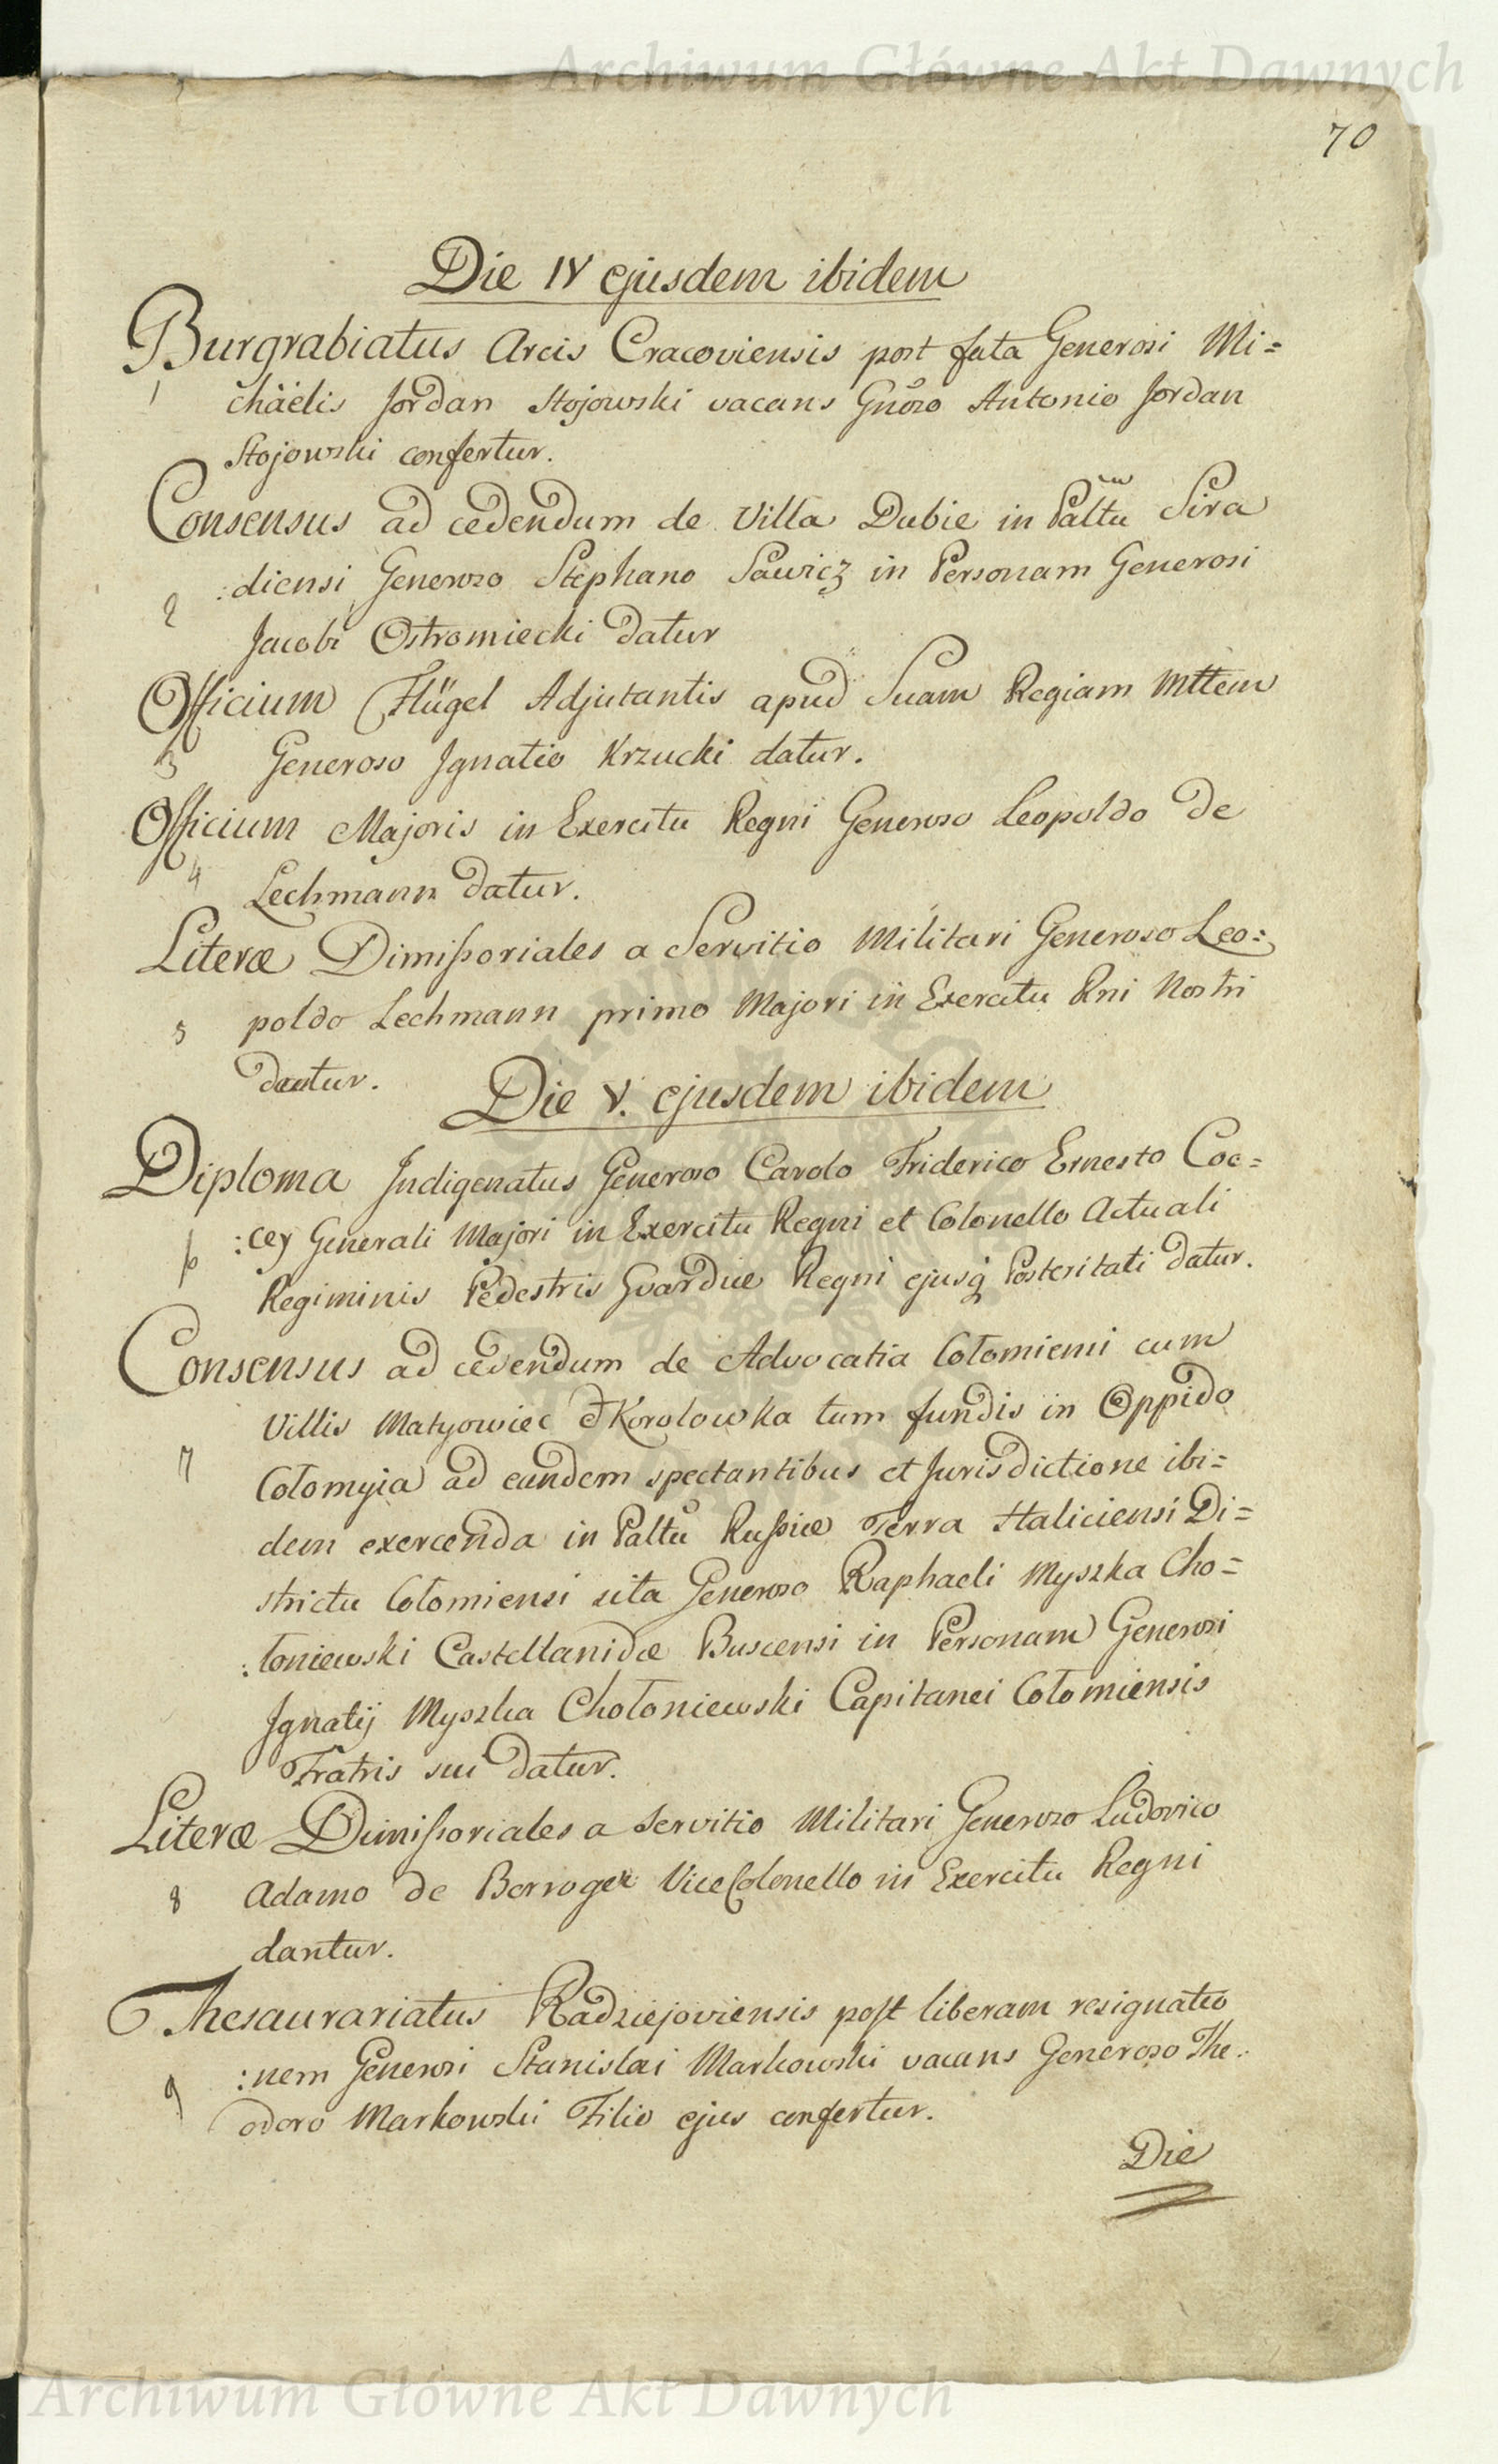 Archiwum Główne Akt Dawnych
70
Die IV ejusdem ibidem
Burgrabiatus Arcis Cracoviensis post fata Generosi Mi=
1 chäelis Jordan Stojowski vacans Gnoso Antonio Jordan
Stojowski confertur.
Consensus ad cedendum de Villa Dubie in Paltu Sira
2 :diensi Generoso Stephano Sawicz in Personam Generosi
Jacobi Ostromiecki datur
Officium Flügel Adjutantis apud Suam Regiam Mttem
3 Generoso Ignatio Krzucki datur.
Officium Majoris in Exercitu Regni Generoso Leopoldo de
4 Lechmann datur.
Literæ Dimißoriales a Servitio Militari Generoso Leo:
5 poldo Lechmann primo Majori in Exercitu Rni Nostri
dantur.
Die V. ejusdem ibidem
Diploma Indigenatus Generoso Carolo Friderico Ernesto Coc=
6 :cey Generali Majori in Exercitu Regni et Colonello Actuali
Regiminis Pedestris Gvardiæ Regni ejusq Posteritati datur.
Consensus ad cedendum de Advocatia Cołomiensi cum
Villis Matyowiec & Korolowka tum fundis in Oppido
7 Cołomyia ad eandem spectantibus et Jurisdictione ibi=
dem exercenda in Paltu Rußiæ Terra Haliciensi Di=
strictu Cołomiensi sita Generoso Raphaeli Myszka Cho=
:łoniewski Castellanidæ Buscensi in Personam Generosi
Ignatij Myszka Chołoniewski Capitanei Cołomiensis
Fratris sui datur.
Literæ Dimißoriales a Servitio Militari Generoso Ludovico
8 Adamo de Berroger ViceColonello in Exercitu Regni
dantur.
Thesaurariatus Radziejoviensis post liberam resignatio
9 :nem Generosi Stanislai Markowski vacans Generoso The:
odoro Markowski Filio ejus confertur.
Die
Archiwum Główne Akt Dawnych